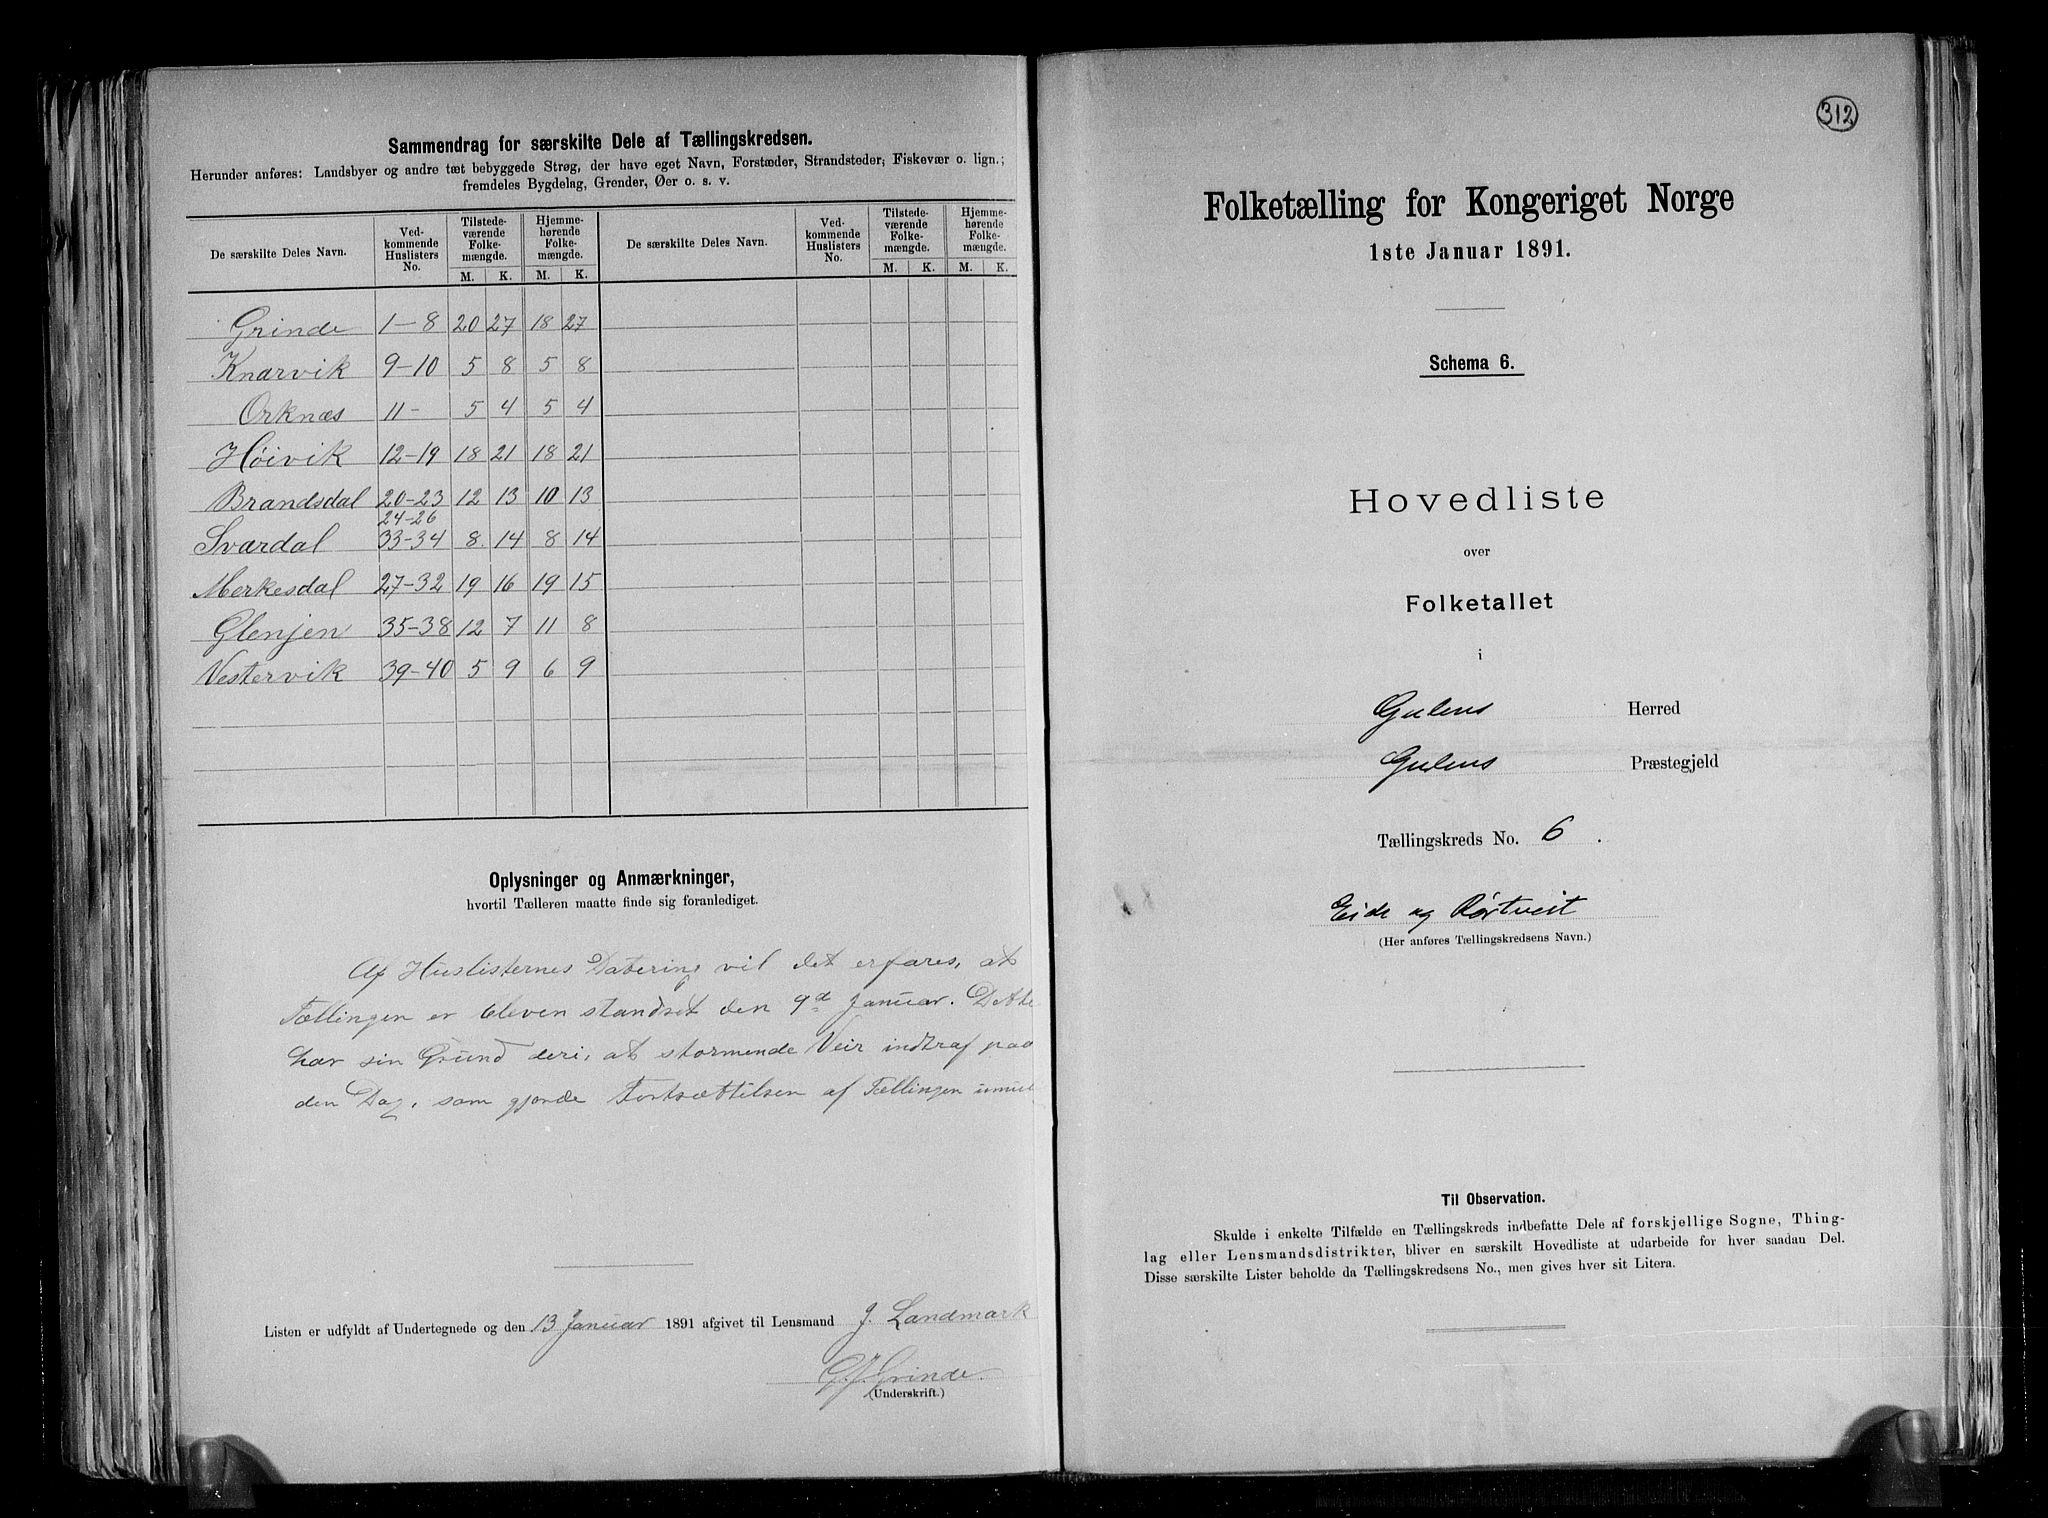 Sammendrag for særskilte Dele af Tællingskredsen.
Herunder anføres: Landsbyer og andre tæt bebyggede Strøg, der have eget Navn, Forstæder, Strandsteder, Fiskevær o. lign.;
fremdeles Bygdelag, Grender, Øer o. s. v.
De særskilte Deles Navn. Ved-kommende Huslisters No. Tilstede-værende Folke-mængde. Hjemme-hørende Folke-mængde. De særskilte Deles Navn. Ved-kommende Huslisters No. Tilstede-værende Folke-mængde. Hjemme-hørende Folke-mængde.
M. K. M. K. M. K. M. K.
Grinde 1-8 20 27 18 27
Knarvik 9-10 5 8 5 8
Orknæs 11- 5 4 5 4
Høivik 12-19 18 21 18 21
Brandsdal 20-23 12 13 10 13
24-26
Sværdal 33-34 8 14 8 14
Merkesdal 27-32 19 16 19 15
Glenjen 35-38 12 7 11 8
Vestervik 39-40 5 9 6 9
Oplysninger og Anmærkninger,
hvortil Tælleren maatte finde sig foranlediget.
Af Huslisternes Datering vil det erfares, at
Tællingen er bleven standset den 9d Januar. Dette
har sin Grund deri, at stormende Veir indtraf paa
den Dag, som gjorde Fortsættelsen af Tællingen umul
Listen er udfyldt af Undertegnede og den 13 Januar 1891 afgivet til Lensmand J. Landmark
G. J. Grinde.
(Underskrift.)
312
Folketælling for Kongeriget Norge
1ste Januar 1891.
Schema 6.
Hovedliste
over
Folketallet
i
Gulens Herred
Gulens Præstegjeld
Tællingskreds No. 6.
Eide og Rørtveit
(Her anføres Tællingskredsens Navn.)
Til Observation.
Skulde i enkelte Tilfælde en Tællingskreds indbefatte Dele af forskjellige Sogne, Thing-
lag eller Lensmandsdistrikter, bliver en særskilt Hovedliste at udarbeide for hver saadan Del.
Disse særskilte Lister beholde da Tællingskredsens No., men gives hver sit Litera.